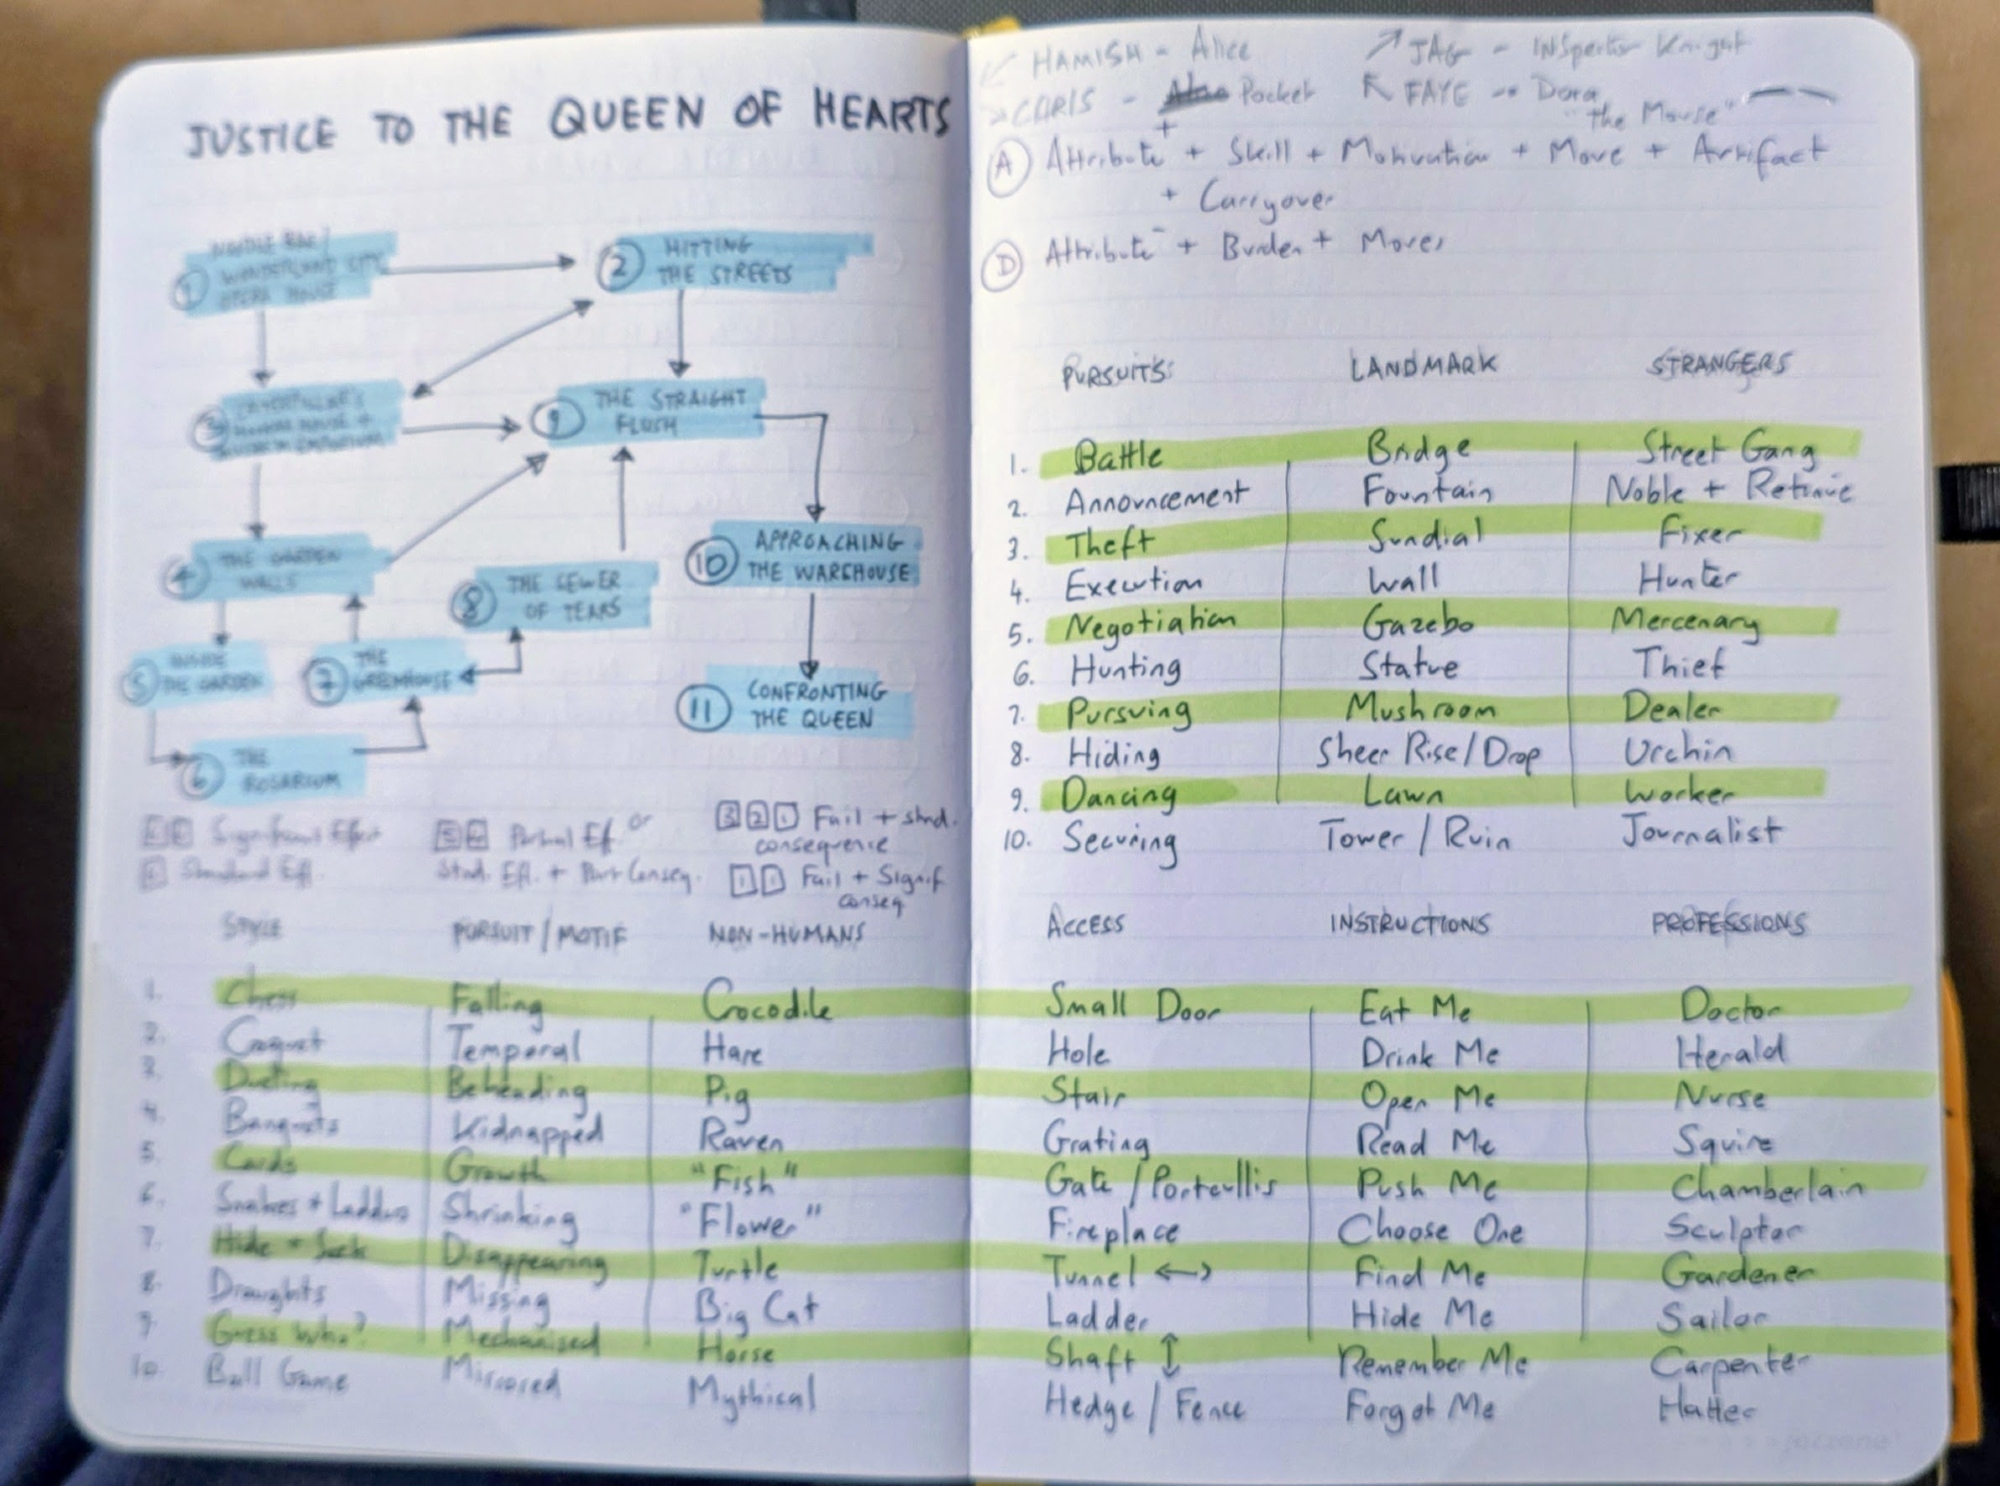 JUSTICE TO THE QUEEN OF HEARTS
1 WONDERLAND CITY
OPERA HOUSE
2 HITTING
THE STREETS
3
4 THE GARDEN
WALLS
5 INSIDE
THE GARDEN
6 THE
ROSARIUM
7 THE
GREENHOUSE
8 THE SEWER
OF TEARS
9 THE STRAIGHT
FLUSH
10 APPROACHING
THE WAREHOUSE
11 CONFRONTING
THE QUEEN
Significant Effect
Standard Eff.
5 4 Partial Eff. or
Stnd. Eff. + Part Conseq.
3 2 1 Fail + stnd.
consequence
1 1 Fail + Signif
conseq
STYLE PURSUIT / MOTIF NON-HUMANS
1. Chess Falling Crocodile
2. Croquet Temporal Hare
3. Dueling Beheading Pig
4. Banquets Kidnapped Raven
5. Cards Growth "Fish"
6. Snakes + Ladders Shrinking "Flower"
7. Hide + Seek Disappearing Turtle
8. Draughts Missing Big Cat
9. Guess Who? Mechanised Horse
10. Ball Game Mirrored Mythical
HAMISH - Alice JAG - INSpector Knight
CARIS - Pocket FAYE - Dora
"the Mouse"
A Attribute+ + Skill + Motivation + Move + Artifact
+ Carryover
D Attribute- + Burden + Moves
PURSUITS LANDMARK STRANGERS
1. Battle Bridge Street Gang
2. Announcement Fountain Noble + Retinue
3. Theft Sundial Fixer
4. Execution Wall Hunter
5. Negotiation Gazebo Mercenary
6. Hunting Statue Thief
7. Pursuing Mushroom Dealer
8. Hiding Sheer Rise/Drop Urchin
9. Dancing Lawn Worker
10. Securing Tower / Ruin Journalist
ACCESS INSTRUCTIONS PROFESSIONS
Small Door Eat Me Doctor
Hole Drink Me Herald
Stair Open Me Nurse
Grating Read Me Squire
Gate / Portcullis Push Me Chamberlain
Fireplace Choose One Sculptor
Tunnel ↔ Find Me Gardener
Ladder Hide Me Sailor
Shaft ↕ Remember Me Carpenter
Hedge / Fence Forget Me Hatter